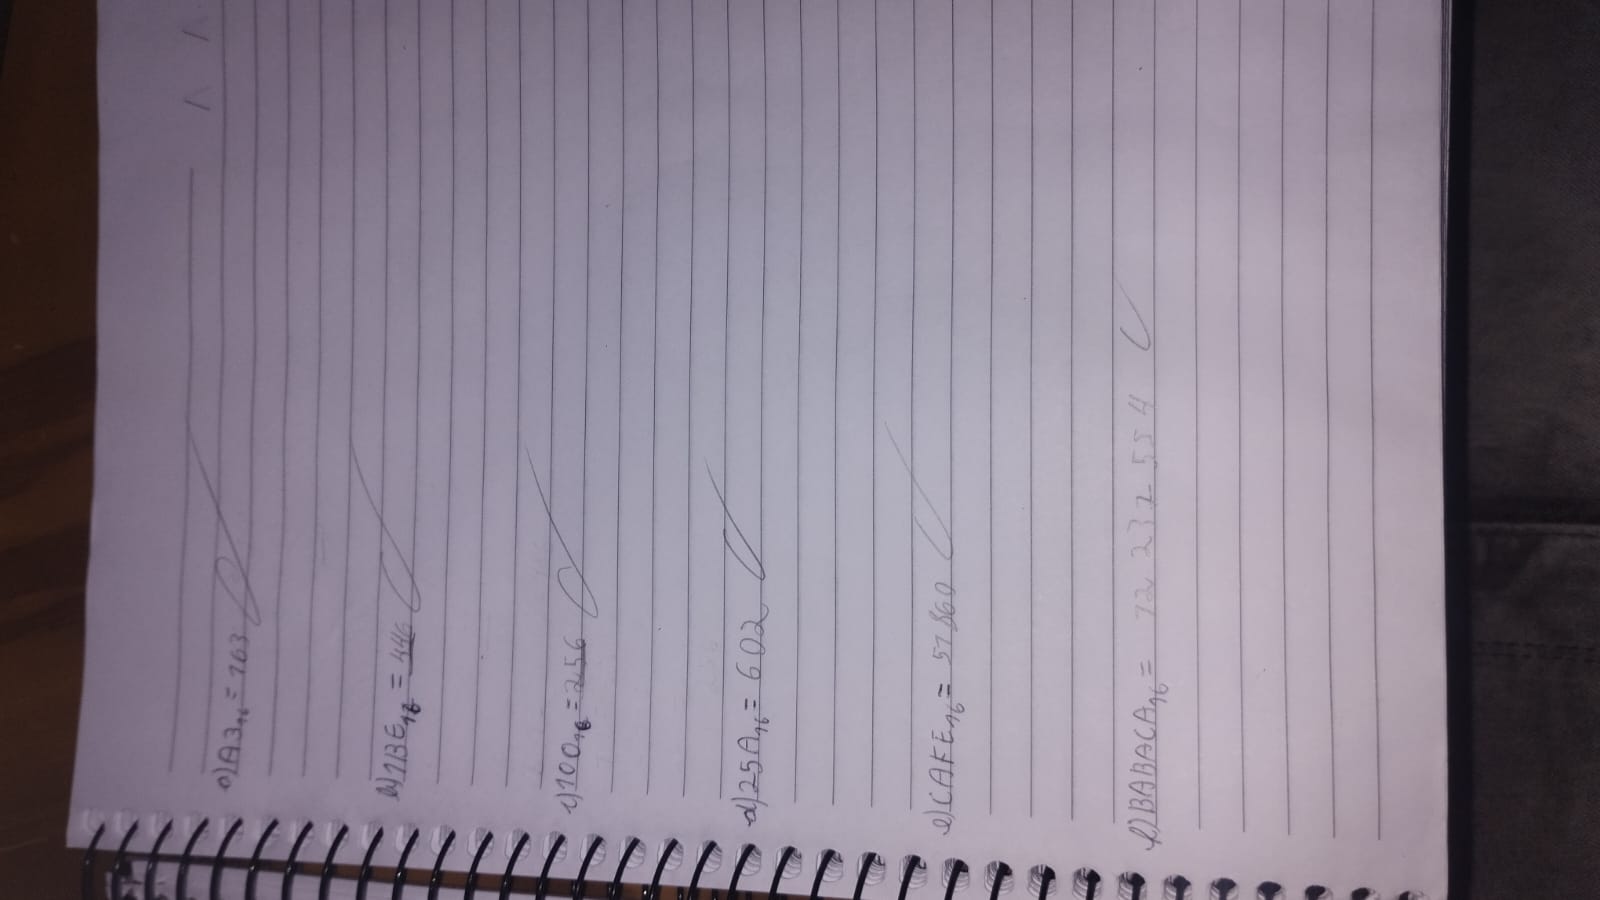 a) A3₁₆ = 163
b) 1BE₁₆ = 446
c) 100₁₆ = 256
d) 25A₁₆ = 602
e) CAFE₁₆ = 51860
f) BABACA₁₆ = 12 237 554